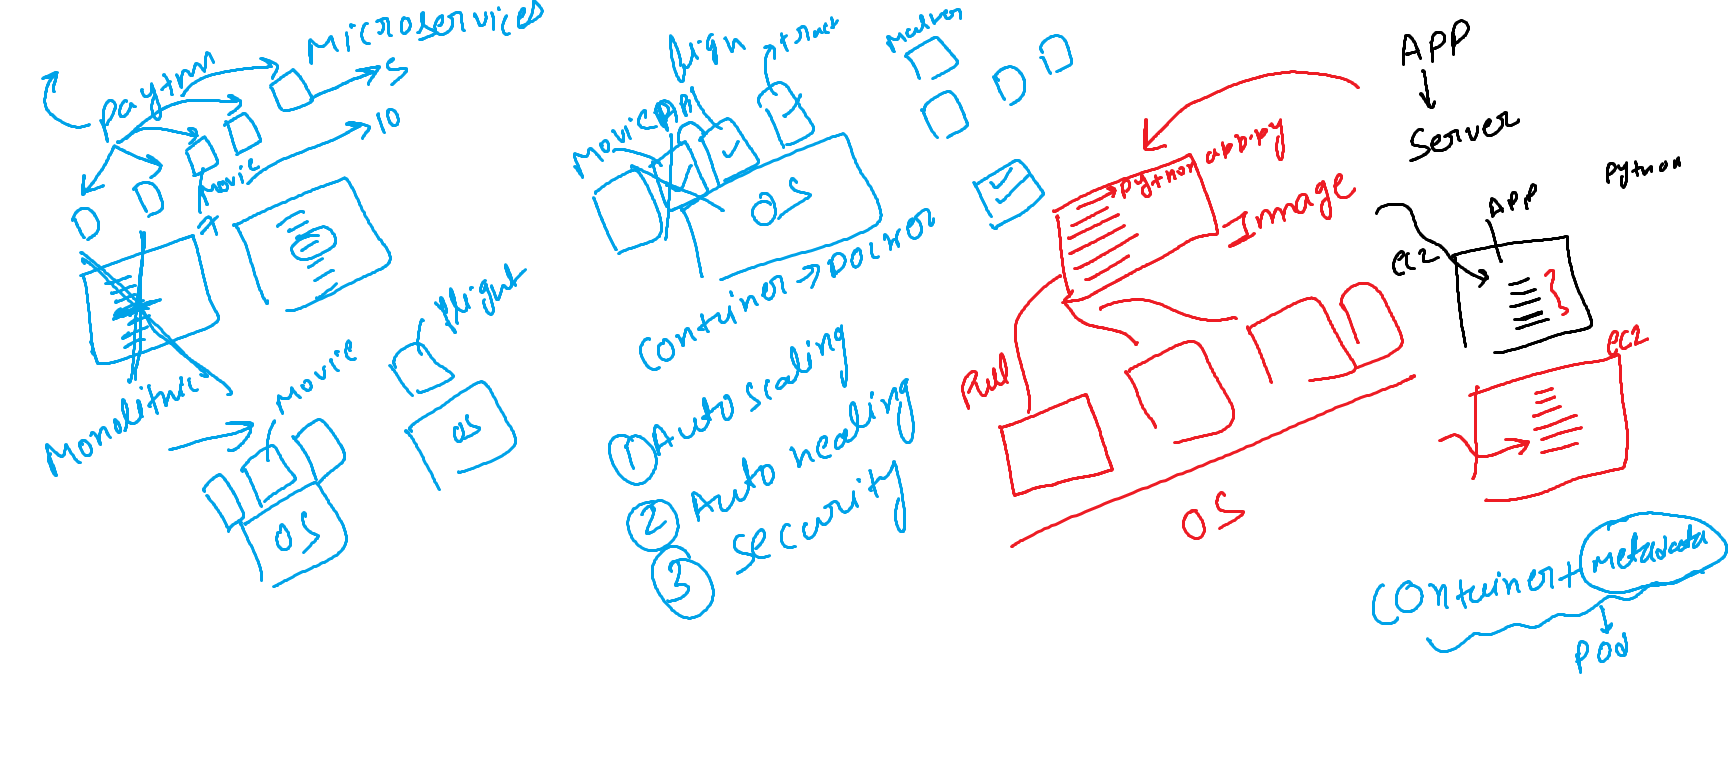 Microservices
Paytm
5
10
Movie
7
Monolithic
Movie
flight
OS
OS
Movie
train
OS
Container → Docker
① Auto scaling
② Auto healing
③ Security
Master
Python app.py
Image
Pull
OS
APP
Server
Python
APP
ec2
ec2
Container + metadata
POd